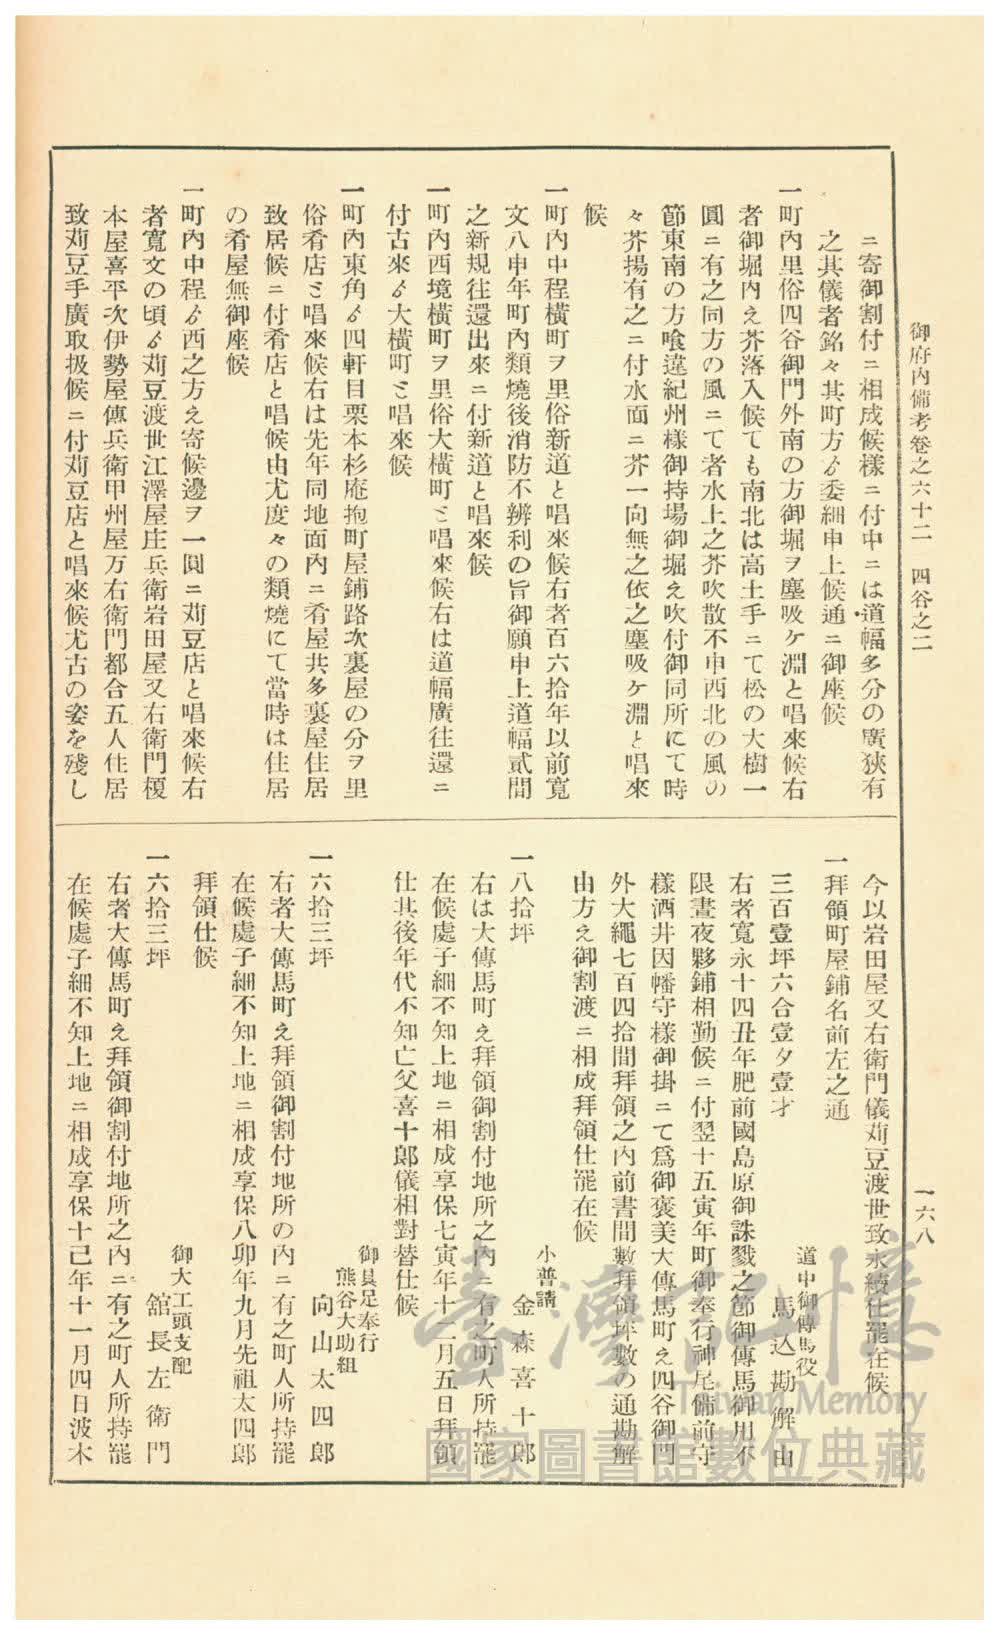 御府内備考卷之六十二　四谷之二
一六八
ニ寄御割付ニ相成候樣ニ付中ニは道幅多分の廣狹有
之其儀者銘々其町方ゟ委細申上候通ニ御座候
一町内里俗四谷御門外南の方御堀ヲ塵吸ケ淵と唱來候右
者御堀内え芥落入候ても南北は高土手ニて松の大樹一
圓ニ有之同方の風ニて者水上之芥吹散不申西北の風の
節東南の方喰違紀州樣御持場御堀え吹付御同所にて時
々芥揚有之ニ付水面ニ芥一向無之依之塵吸ケ淵と唱來
候
一町内中程橫町ヲ里俗新道と唱來候右者百六拾年以前寬
文八申年町内類燒後消防不辨利の旨御願申上道幅貳間
之新規往還出來ニ付新道と唱來候
一町内西境橫町ヲ里俗大橫町と唱來候右は道幅廣往還ニ
付古來ゟ大橫町と唱來候
一町内東角ゟ四軒目栗本杉庵抱町屋鋪路次裏屋の分ヲ里
俗肴店と唱來候右は先年同地面内ニ肴屋共多裏屋住居
致居候ニ付肴店と唱候由尤度々の類燒にて當時は住居
の肴屋無御座候
一町内中程ゟ西之方え寄候邊ヲ一圓ニ苅豆店と唱來候右
者寬文の頃ゟ苅豆渡世江澤屋庄兵衛岩田屋又右衛門榎
本屋喜平次伊勢屋傳兵衛甲州屋万右衛門都合五人住居
致苅豆手廣取扱候ニ付苅豆店と唱來候尤古の姿を殘し
今以岩田屋又右衛門儀苅豆渡世致永續仕罷在候
一拜領町屋鋪名前左之通
道中御傳馬役
三百壹坪六合壹夕壹才　馬込勘解由
右者寬永十四丑年肥前國島原御誅戮之節御傳馬御用不
限晝夜夥鋪相勤候ニ付翌十五寅年町御奉行神尾備前守
樣酒井因幡守樣御掛ニて爲御褒美大傳馬町え四谷御門
外大繩七百四拾間拜領之内前書間數拜領坪數の通勘解
由方え御割渡ニ相成拜領仕罷在候
小普請
一八拾坪　金森喜十郎
右は大傳馬町え拜領御割付地所之内ニ有之町人所持罷
在候處子細不知上地ニ相成享保七寅年十二月五日拜領
仕其後年代不知亡父喜十郎儀相對替仕候
御具足奉行
熊谷大助組
一六拾三坪　向山太四郎
右者大傳馬町え拜領御割付地所の内ニ有之町人所持罷
在候處子細不知上地ニ相成享保八卯年九月先祖太四郎
拜領仕候
御大工頭支配
一六拾三坪　舘長左衛門
右者大傳馬町え拜領御割付地所之内ニ有之町人所持罷
在候處子細不知上地ニ相成享保十己年十一月四日波木
臺灣記憶
Taiwan Memory
國家圖書館數位典藏